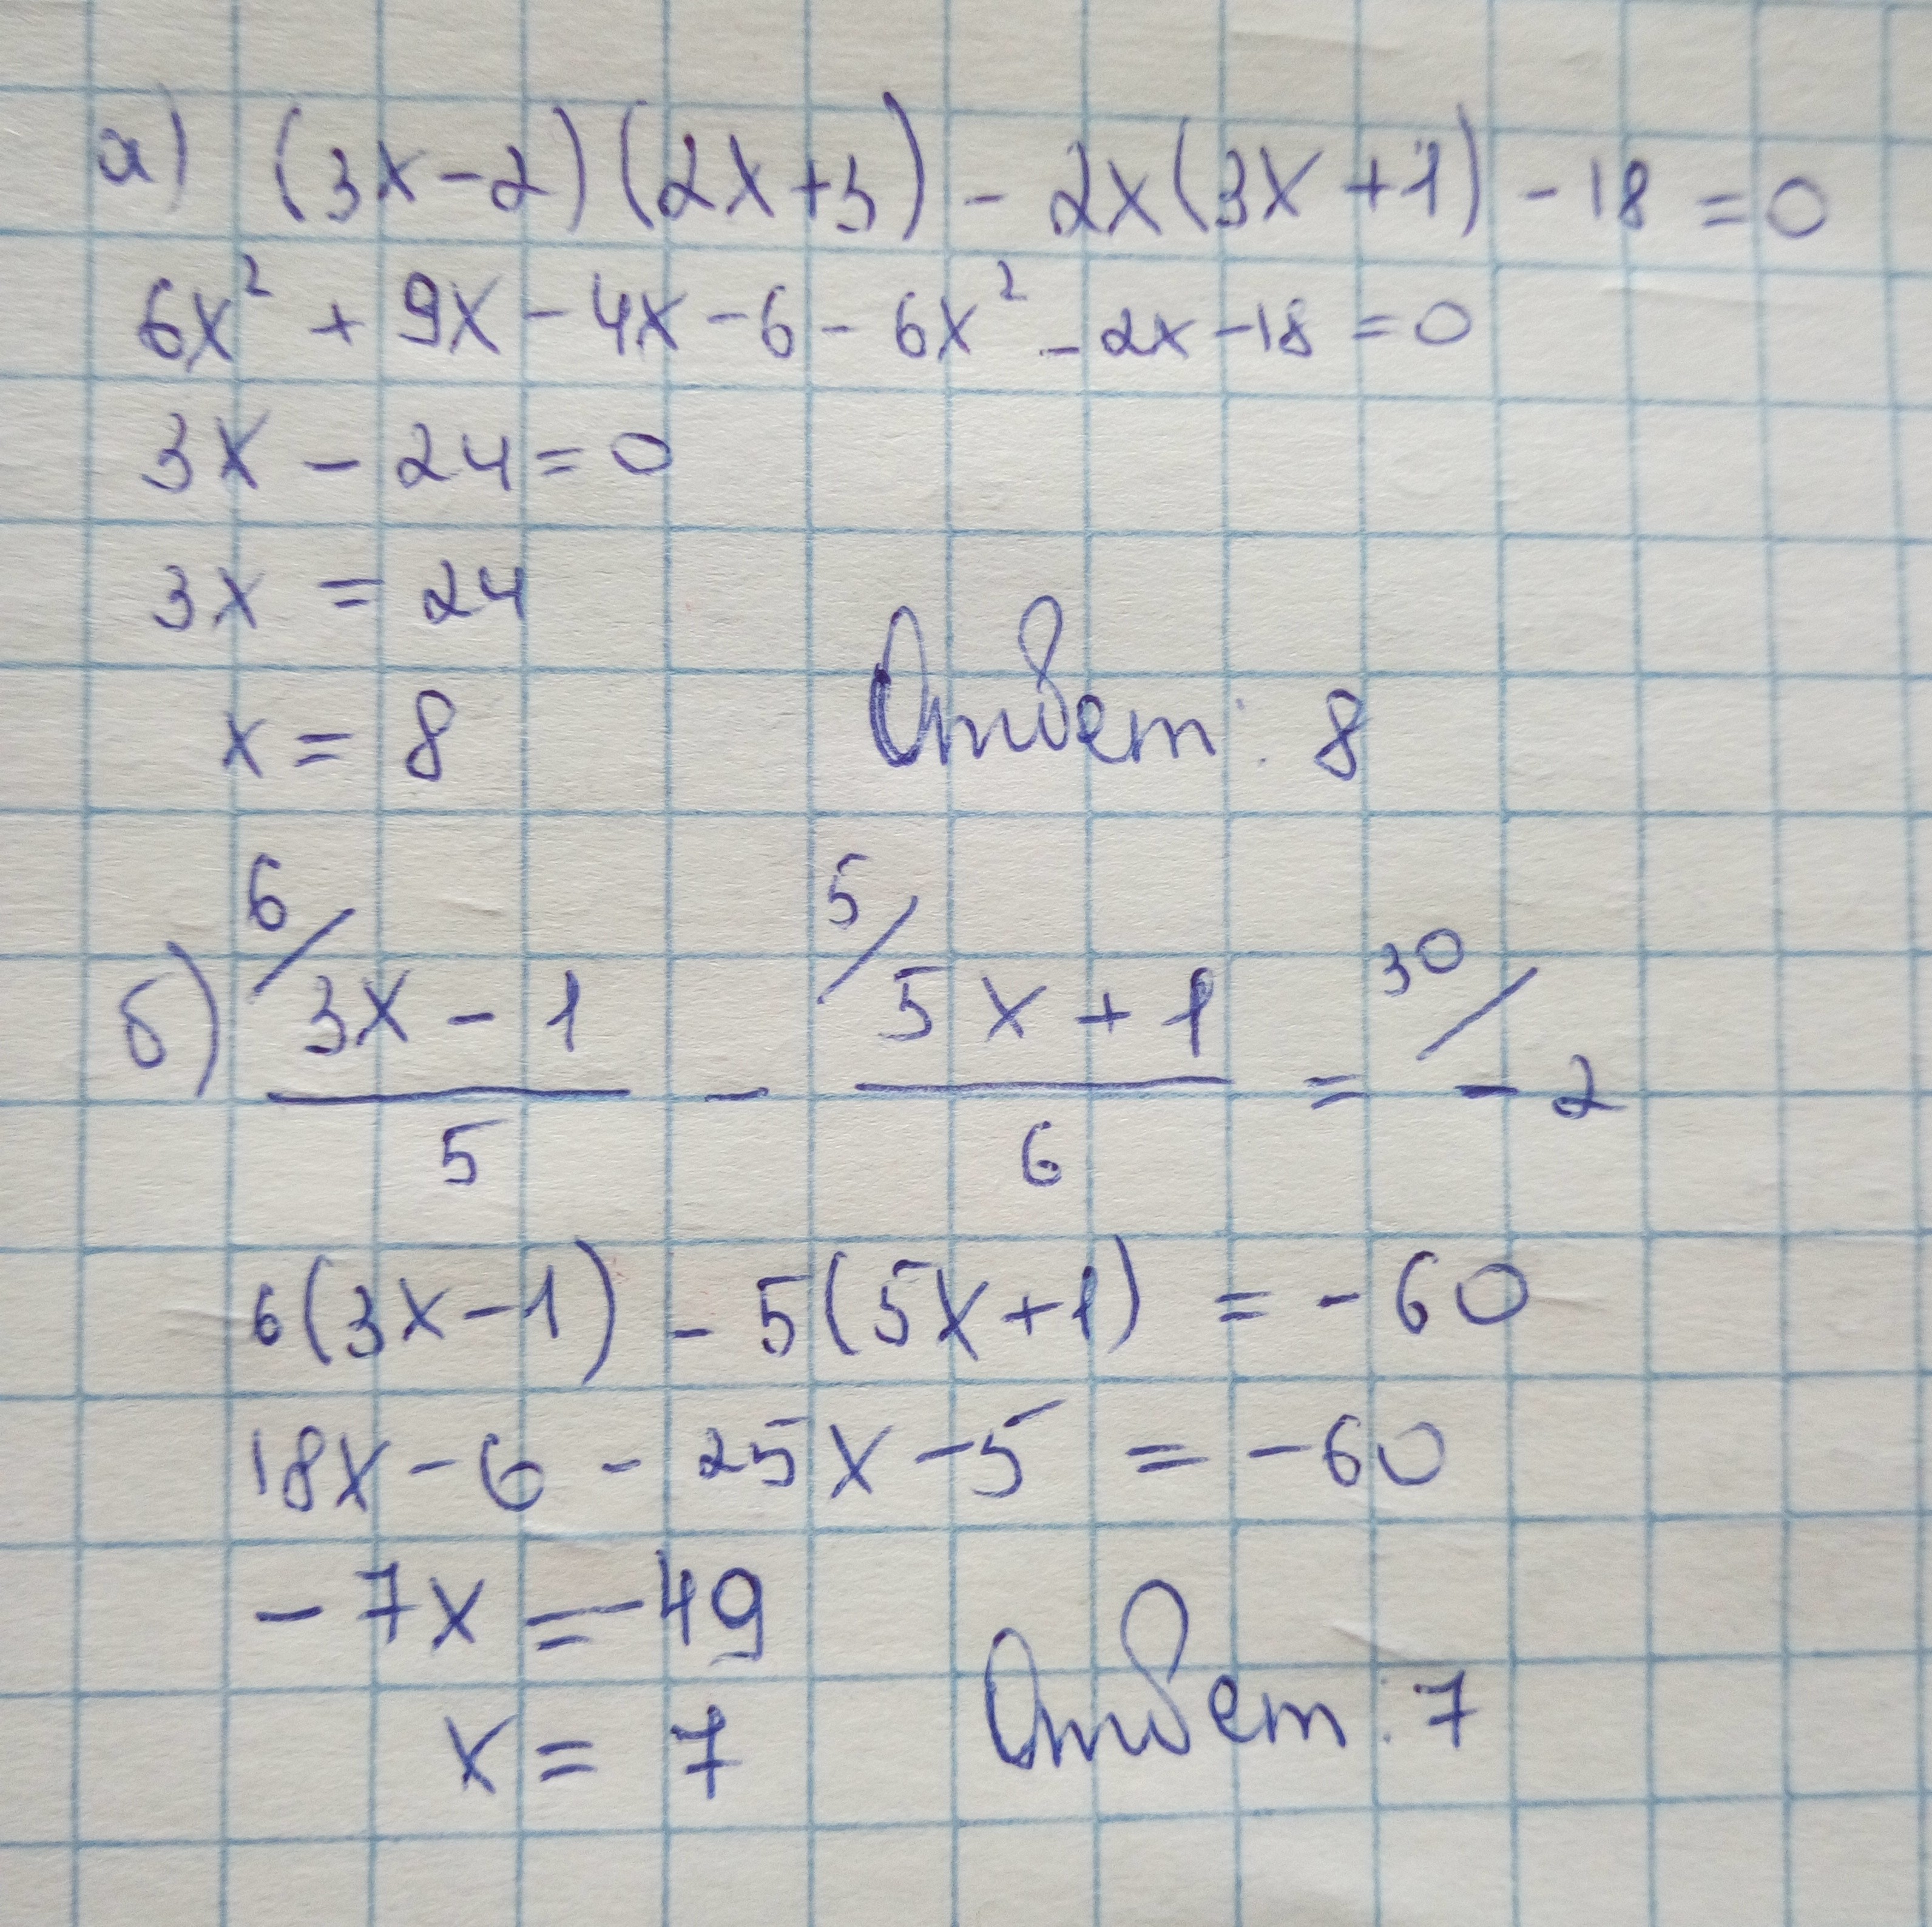 а) (3x-2)(2x+3) - 2x(3x+1) - 18 = 0
6x² + 9x - 4x - 6 - 6x² - 2x - 18 = 0
3x - 24 = 0
3x = 24
x = 8 Ответ: 8
6/ 5/ 30/
б) 3x - 1 / 5 - 5x + 1 / 6 = - 2
6(3x-1) - 5(5x+1) = - 60
18x - 6 - 25x - 5 = - 60
- 7x = - 49
x = 7 Ответ: 7